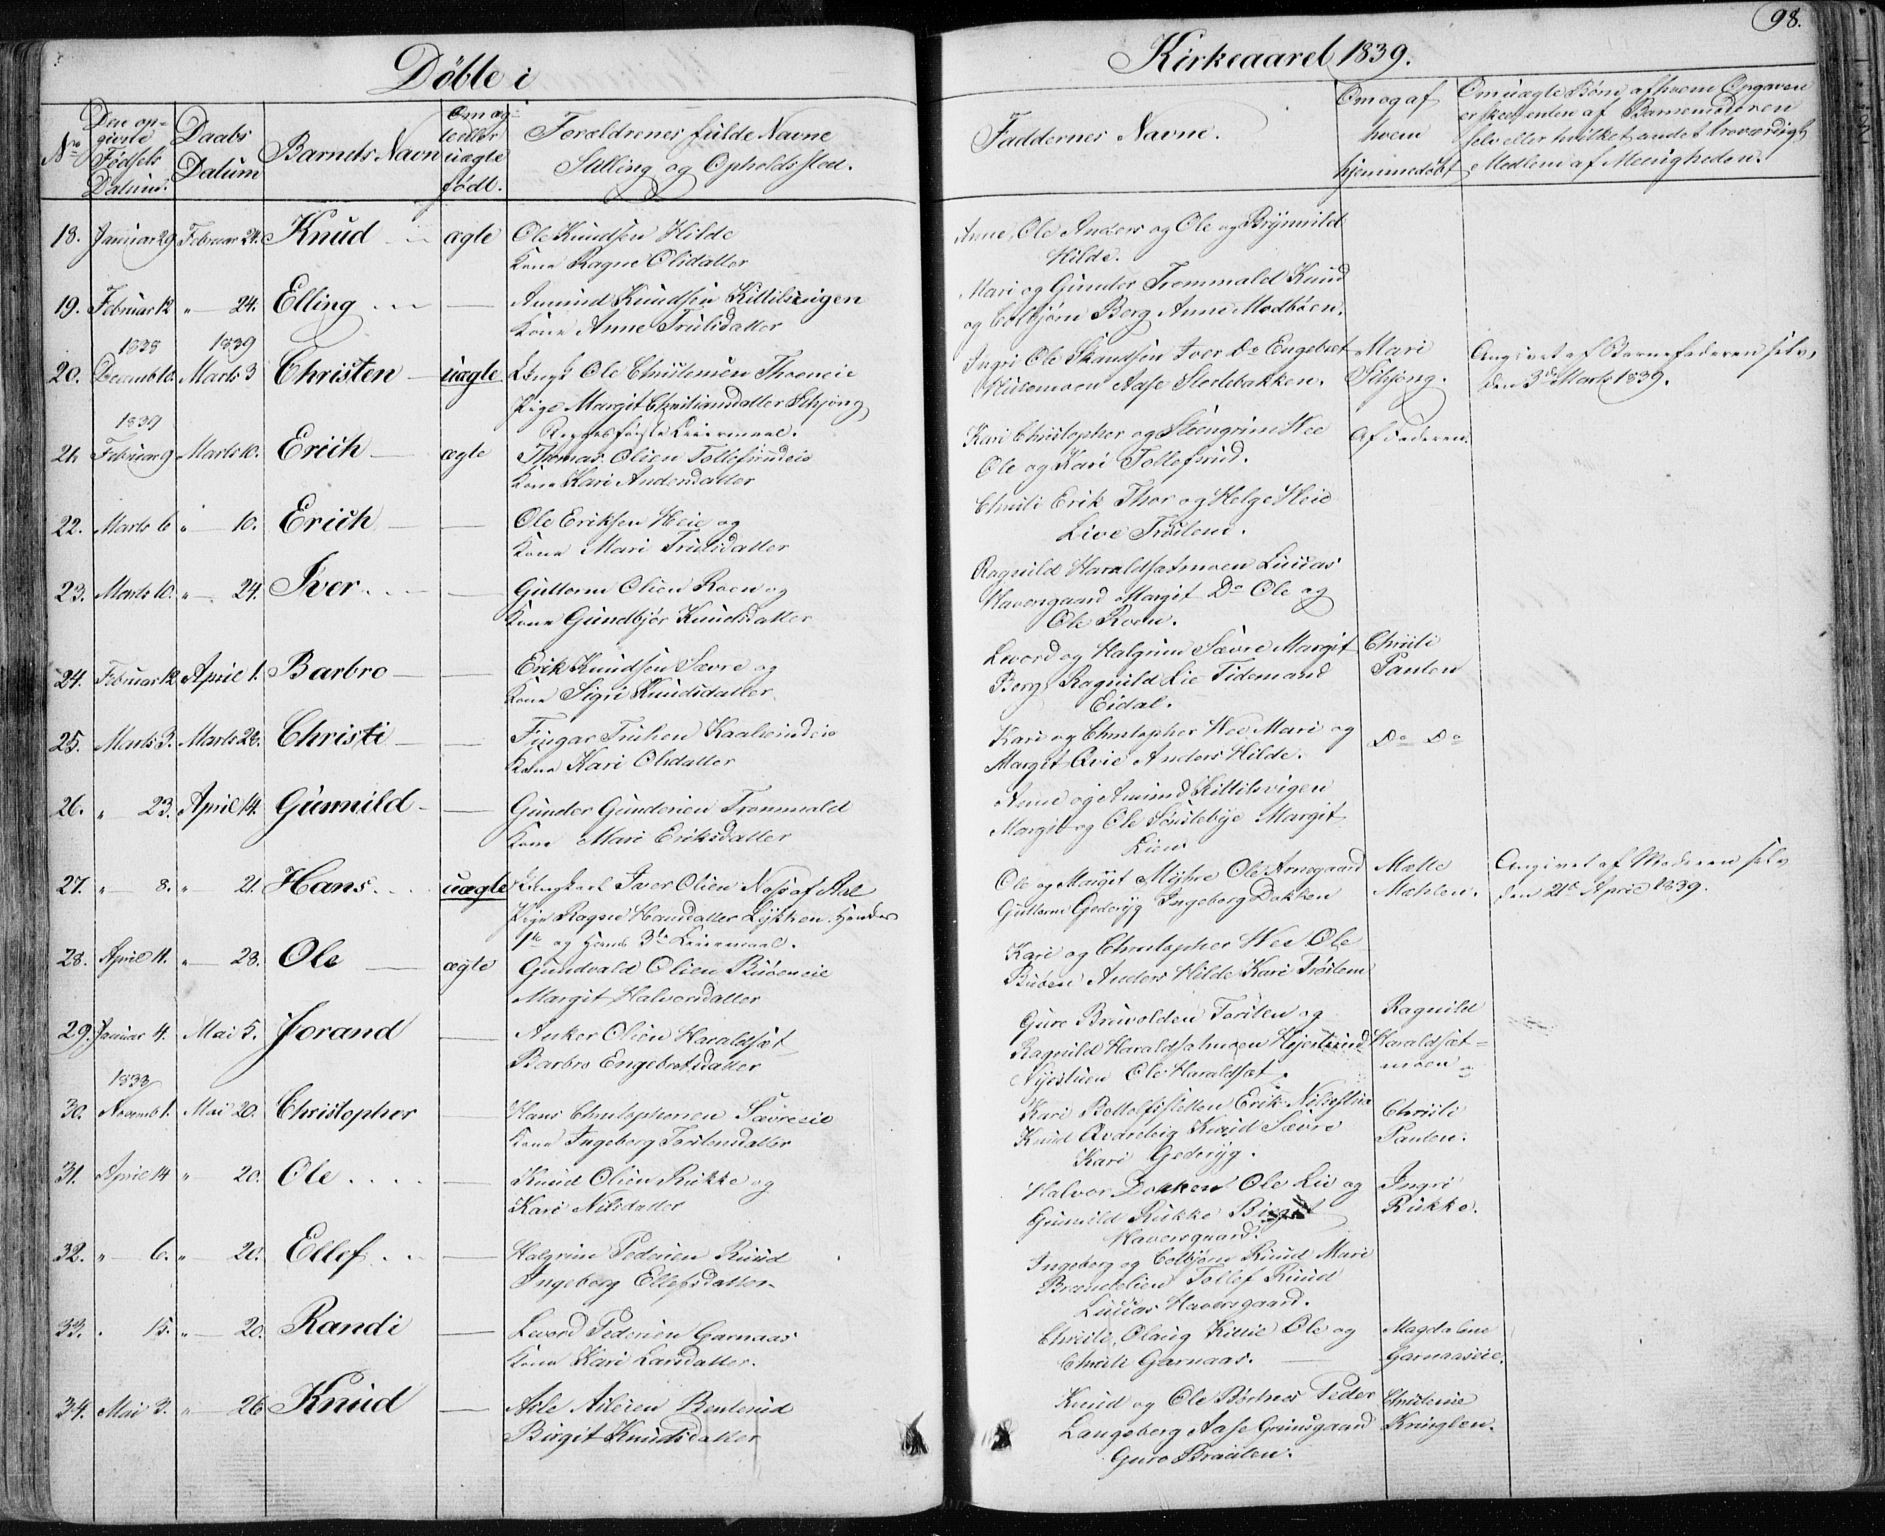 98.
Døbte i Kirkeaaret 1839.
No
Den op-
givne
Fødsels
Datum.
Daabs
Datum
Barnets Navn
Om æg-
te eller
uægte
født.
Forældrenes fulde Navne
Stilling og Opholdssted.
Faddernes Navne.
Om og af
hvem
hjemmedøbt
Om uægte Børn af hvem Opgaven
er skeet enten af Barnemoderen
selv eller hvilket andet troværdigt
Medlem af Menigheden.
18. Januar 29 Februar 24. Knud ægte Ole Knudsen Hilde
Kone Ragne Olsdatter
Anne, Ole Anders og Ole og Brynnild
Hilde.
19. Februar 12 " 24. Elling — Amund Knudsen Kittilsvigen
Kone Anne Trulsdatter
Mari og Gunder Trommald Knud
og Colbjørn Berg Anne Modbøen.
1838 1839
20. Decemb 10. Marts 3 Christen uægte Ole Christensen
Pige Margit Christiansdatter
Begges første Leiermaal.
Ingri Ole Iver Do Engebret
Aase Storlebakken.
Mari
Angivet af Barnefaderen selv,
den 3de Marts 1839.
1839
21. Februar 9 Marts 10. Erich ægte Thomas Olsen Tollefsrudeie
Kone Kari Andersdatter
Kari Christopher og Steengrim Wee
Ole og Kari Tollefsrud.
Af Faderen.
22. Marts 6 " 10. Erich — Ole Eriksen Heie og
Kone Mari Trulsdatter
Christi Erik Thor og Helge Heie
Live Trøstem.
23. Marts 10. " 24. Iver — Guttorm Olsen Roen og
Kone Gundbjør Knudsdatter
Ragnild Haraldsetmoen Lucas
Haversgaard Margit Do Ole og
Ole Roen.
24. Februar 12 April 1. Barbro — Erik Knudsen Sævre og
Kone Sigri Knudsdatter
Levord og Halgrim Sævre Margit
Berg, Ragnild Lie Tidemand
Eidal.
Christi
Panten
25. Marts 3. Marts 28. Christi — Kaalsrudeie
Kone Kari Olsdatter
Kari og Christopher Wee Mari og
Margit Qvie Anders Hilde.
Do Do
26. " 23. April 14. Gunnild — Gunder Gundersen Trommald
Kone Mari Eriksdatter
Anne og Amund Kittilsvigen
Margit og Ole Sørstebye Margit
Lien
27. " 8. " 21. Hans uægte Ungkarl Iver Olsen Næs af Aal
Pige Ragne Hansdatter Lykken. Hendes
1te og Hans 3de Leiermaal.
Ole og Margit Myhre Ole Arnegaard
Guttorm Gederyg Ingeborg Dokken
Mette
Mæhlen.
Angivet af Moderen selv
den 21de April 1839.
28. April 11. " 28. Ole ægte Gundvald Olsen
Margit Halvorsdatter
Kari og Christopher Wee Ole
Anders Hilde Kari Trøstem
29. Januar 4. Mai 5. Jorand — Anker Olsen Haraldset
Barbro Engebretsdatter
Guro Bruvolden Torsten og
Ragnild Haraldsetmoen
Nyestuen Ole Haraldset.
Ragnild
Haraldset-
moen
1838
30. Novemb 1. Mai 20. Christopher — Hans Christophersen Sævreeie
Kone Ingeborg Torstensdatter
Kari Erik
Knud Knud Sævre
Kari Gederyg.
Christi
Panten.
31. April 14 " 20. Ole — Knud Olsen Rukke og
Kari Nilsdatter
Halvor Dokken Ole Lie og
Gunnild Rukke Birgit
Haversgaard.
Ingri
Rukke.
32. " 6. " 20. Ellef — Halgrim Pedersen Ruud
Ingeborg Ellefsdatter
Ingeborg og Colbjørn Ruud Mari
Tollef Ruud
Lucas Haversgaard.
33. " 15. " 20. Randi — Levord Pedersen Garnaas
Kone Kari Larsdatter.
Christi, Olaug Ole og
Christi Garnaas.
Magdalene
Garnaaseie.
34. Mai 3. " 26 Knud — Asle Aslesen Benterud
Birgit Knudsdatter
Knud og Ole Børtnes Peder
Langeberg Aase Grimsgaard
Guro Braaten.
Christine
Kringlen.